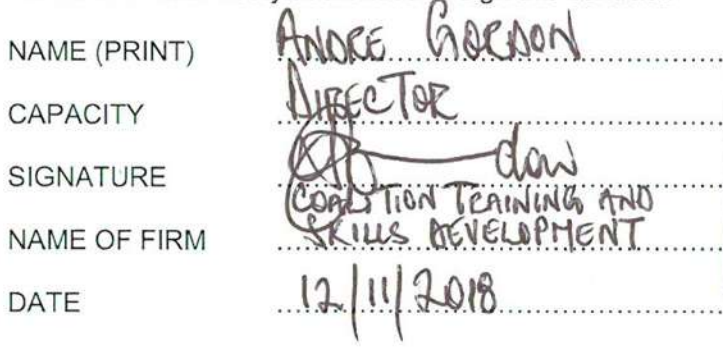 NAME (PRINT) ANDRE GORDON
CAPACITY DIRECTOR
SIGNATURE
COALITION TRAINING AND
NAME OF FIRM SKILLS DEVELOPMENT
DATE 12/11/2018